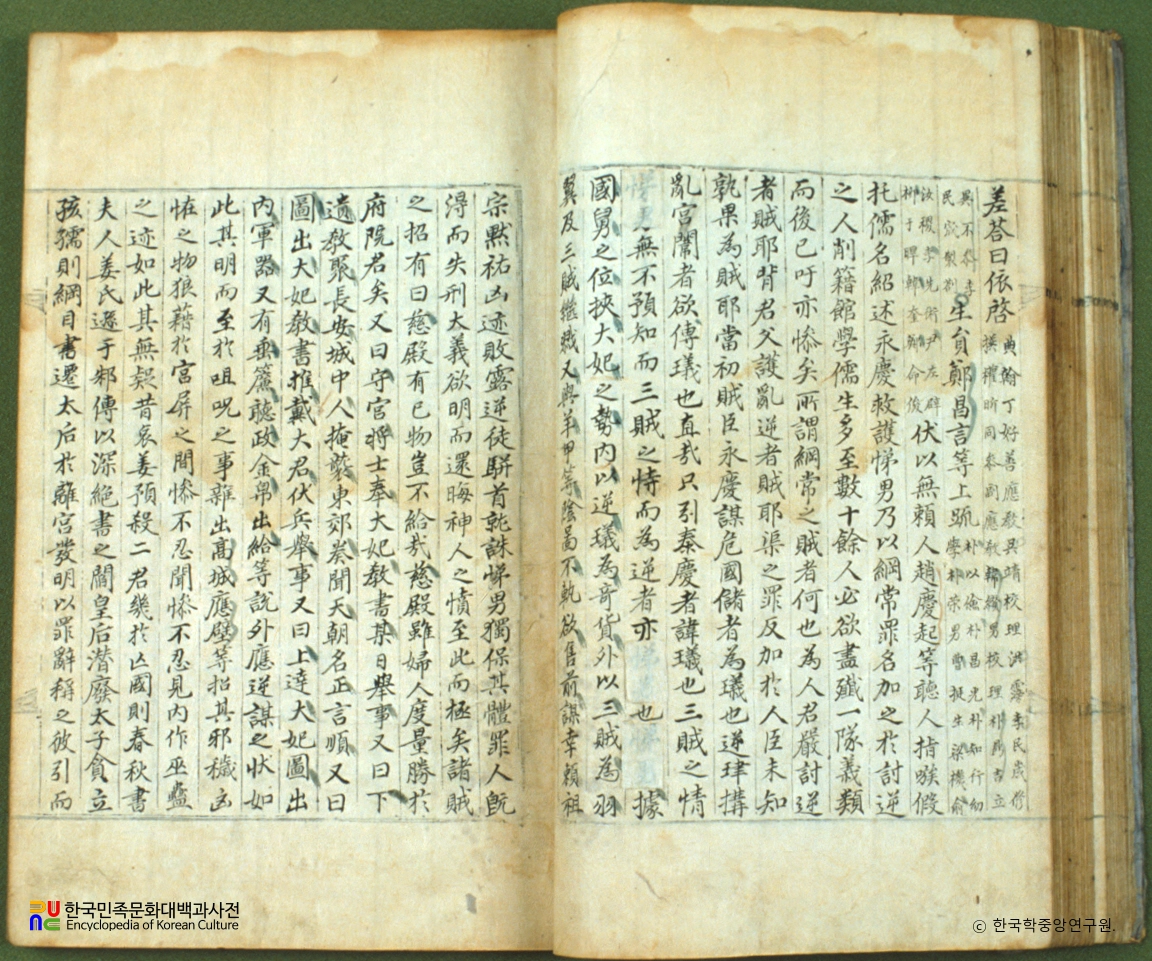 差答曰依啓 典翰丁好善應敎吳靖校理洪霶李民
生員鄭昌言等上疏
伏以無賴人趙慶起等聽人指嗾假
托儒名紹述永慶救護悌男乃以綱常罪名加之於討逆
之人削籍館學儒生多至數十餘人必欲盡殲一隊義類
而後已吁亦慘矣所謂綱常之賊者何也爲人君嚴討逆
者賊耶背君父護亂逆者賊耶渠之罪反加於人臣未知
孰果爲賊耶當初賊臣永慶謀危國儲者爲㼁也逆珒搆
亂宮闈者欲傳㼁也直㦲只引秦慶者諱㼁也三賊之情
無不預知而三賊之恃而爲逆者亦也據
國舅之位挾大妃之勢內以逆㼁爲奇貨外以三賊爲羽
翼及三賊繼敗又與羊甲等陰啚不軌欲售前謀幸賴祖
宗黙祐凶迹敗露逆徒騈首就誅悌男獨保其體罪人旣
得而失刑大義欲明而還晦神人之憤至此而極矣諸賊
之招有曰慈殿有已物豈不給㦲慈殿雖婦人度量勝於
府院君矣又曰守宮將士奉大妃敎書某日擧事又曰下
遺敎張長安城中人掩襲東郊奏聞天朝名正言順又曰
圖出大妃敎書推戴大君伏兵擧事又曰上達大妃圖出
內軍器又有垂簾聽政金帛出給等說外應逆謀之狀如
此其明而至於咀呪之事雜出高城應壁等招其邪穢
恠之物狼藉於宮屛之間慘不忍聞慘不忍見內作巫蠱
之迹如此其無疑昔哀姜預殺二君幾於亡國則春秋書
夫人姜氏遜于邾傳以深絶書之閻皇后潛廢太子貪立
孩孺則綱目書遷太后於離宮發明以罪辭稱之彼引而
한국민족문화대백과사전
Encyclopedia of Korean Culture
© 한국학중앙연구원.